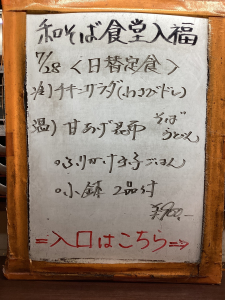 和そば食堂入福
7/28 <日替定食>
冷) チキンサラダ(わさびドレ)
温) 甘あげ昆布 そば うどん
○ふりかけ玉子ごはん
○小鉢 2品付
¥700.-
=入口はこちら⇒